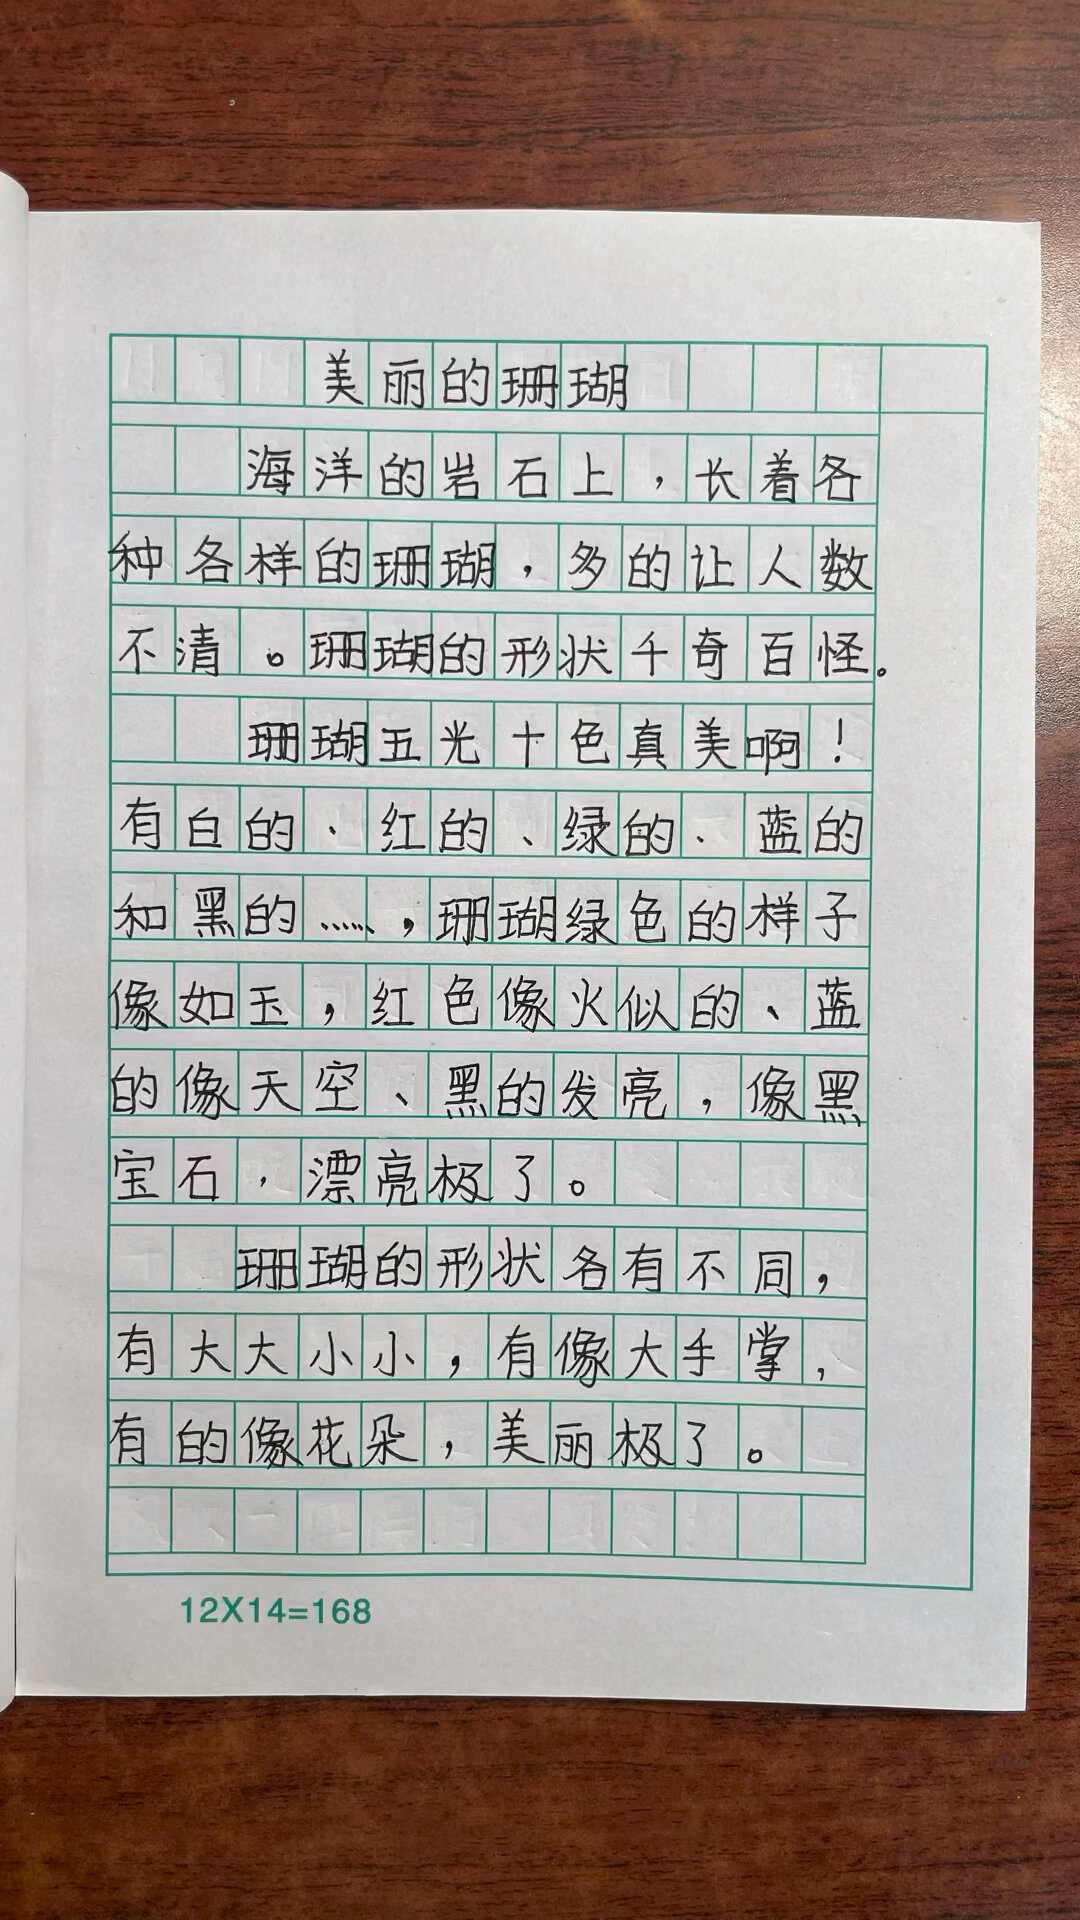 美丽的珊瑚
海洋的岩石上，长着各
种各样的珊瑚，多的让人数
不清。珊瑚的形状千奇百怪。
珊瑚五光十色真美啊！
有白的、红的、绿的、蓝的
和黑的……，珊瑚绿色的样子
像如玉，红色像火似的、蓝
的像天空、黑的发亮，像黑
宝石，漂亮极了。
珊瑚的形状各有不同，
有大大小小，有像大手掌，
有的像花朵，美丽极了。
12X14=168